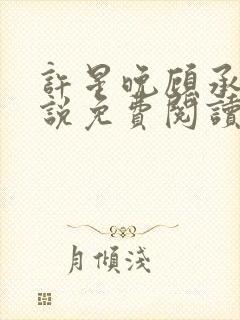 許星晚顧承
說免費閱讀
月傾淺